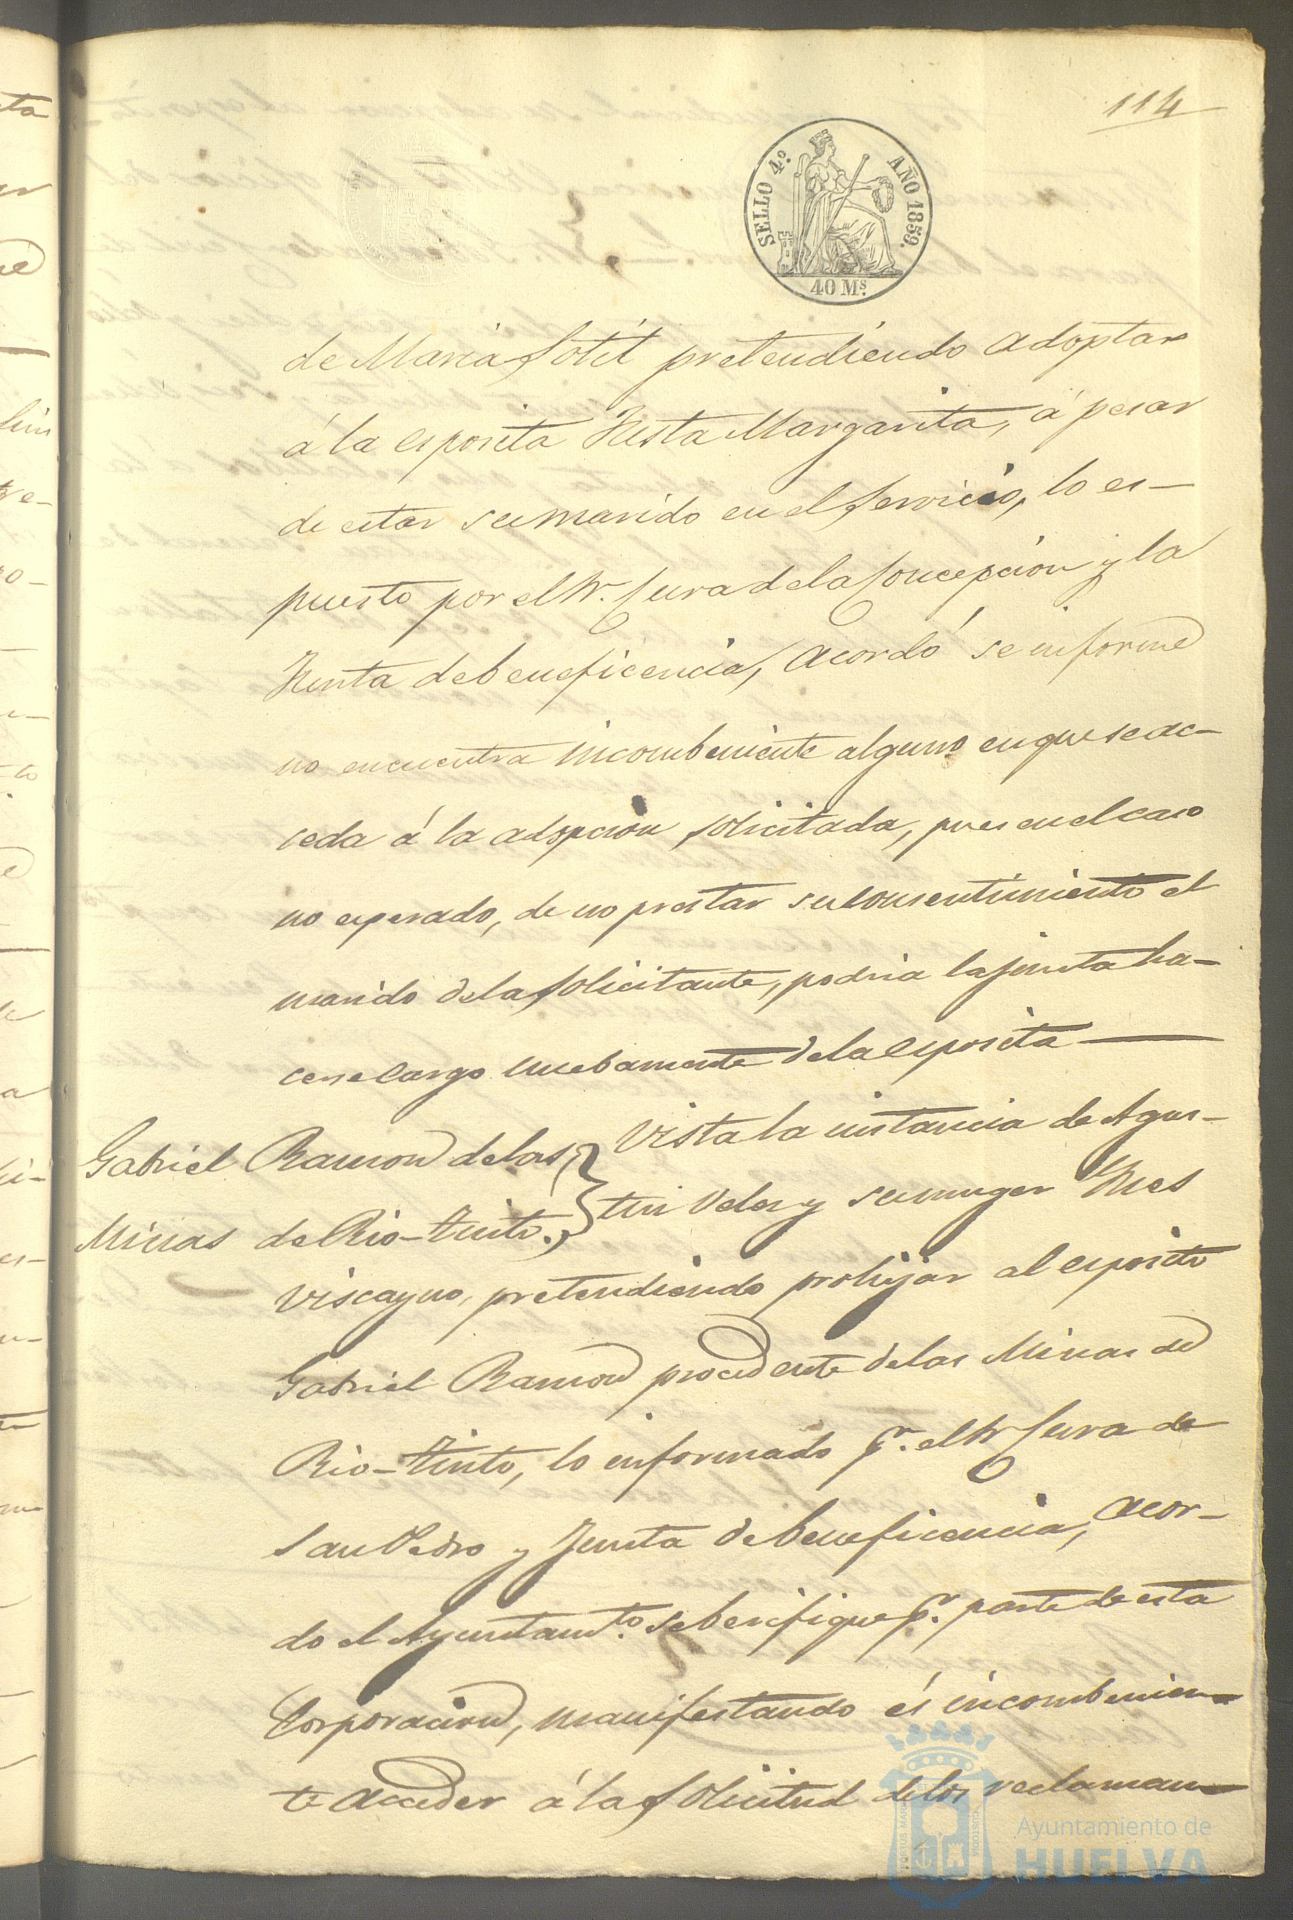 114
SELLO 4º. AÑO 1859.
40 Ms.
de Maria Sotil pretendiendo adoptar
á la esposita Justa Margarita, á pesar
de estar su marido en el servicio, lo es-
puesto por el Sr. Cura de la Concepcion y la
Junta de beneficencia, acordó se informe
no encuentra incombeniente alguno en que se ac-
ceda á la adopcion solicitada, pues en el caso
no esperado, de no prestar su consentimiento el
marido de la solicitante, podria la junta ha-
cerse cargo nuebamente de la esposita
Gabriel Ramon de las
Minas de Rio-tinto.
Vista la instancia de Agus-
tin Veles y su muger Ynes
Viscayno, pretendiendo prohijar al esposito
Gabriel Ramon procedente de las Minas de
Rio-tinto, lo informado pr. el Sr Cura de
San Pedro y Junta de beneficencia, acor-
do el Ayuntamto. se berifique pr. parte de esta
Corporacion, manifestando és incombenien-
te acceder á la solicitud de los reclaman-
Ayuntamiento de
HUELVA